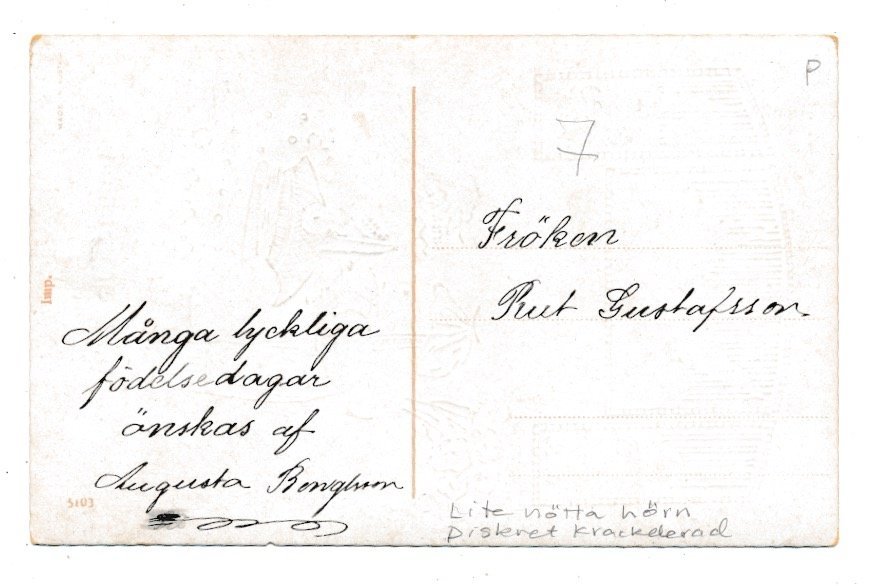 P
7
Fröken
Rut Gustafsson
Imp.
Många lyckliga
födelsedagar
önskas af
Augusta Bengtsson
5103
Lite nötta hörn
Diskret krackelerad